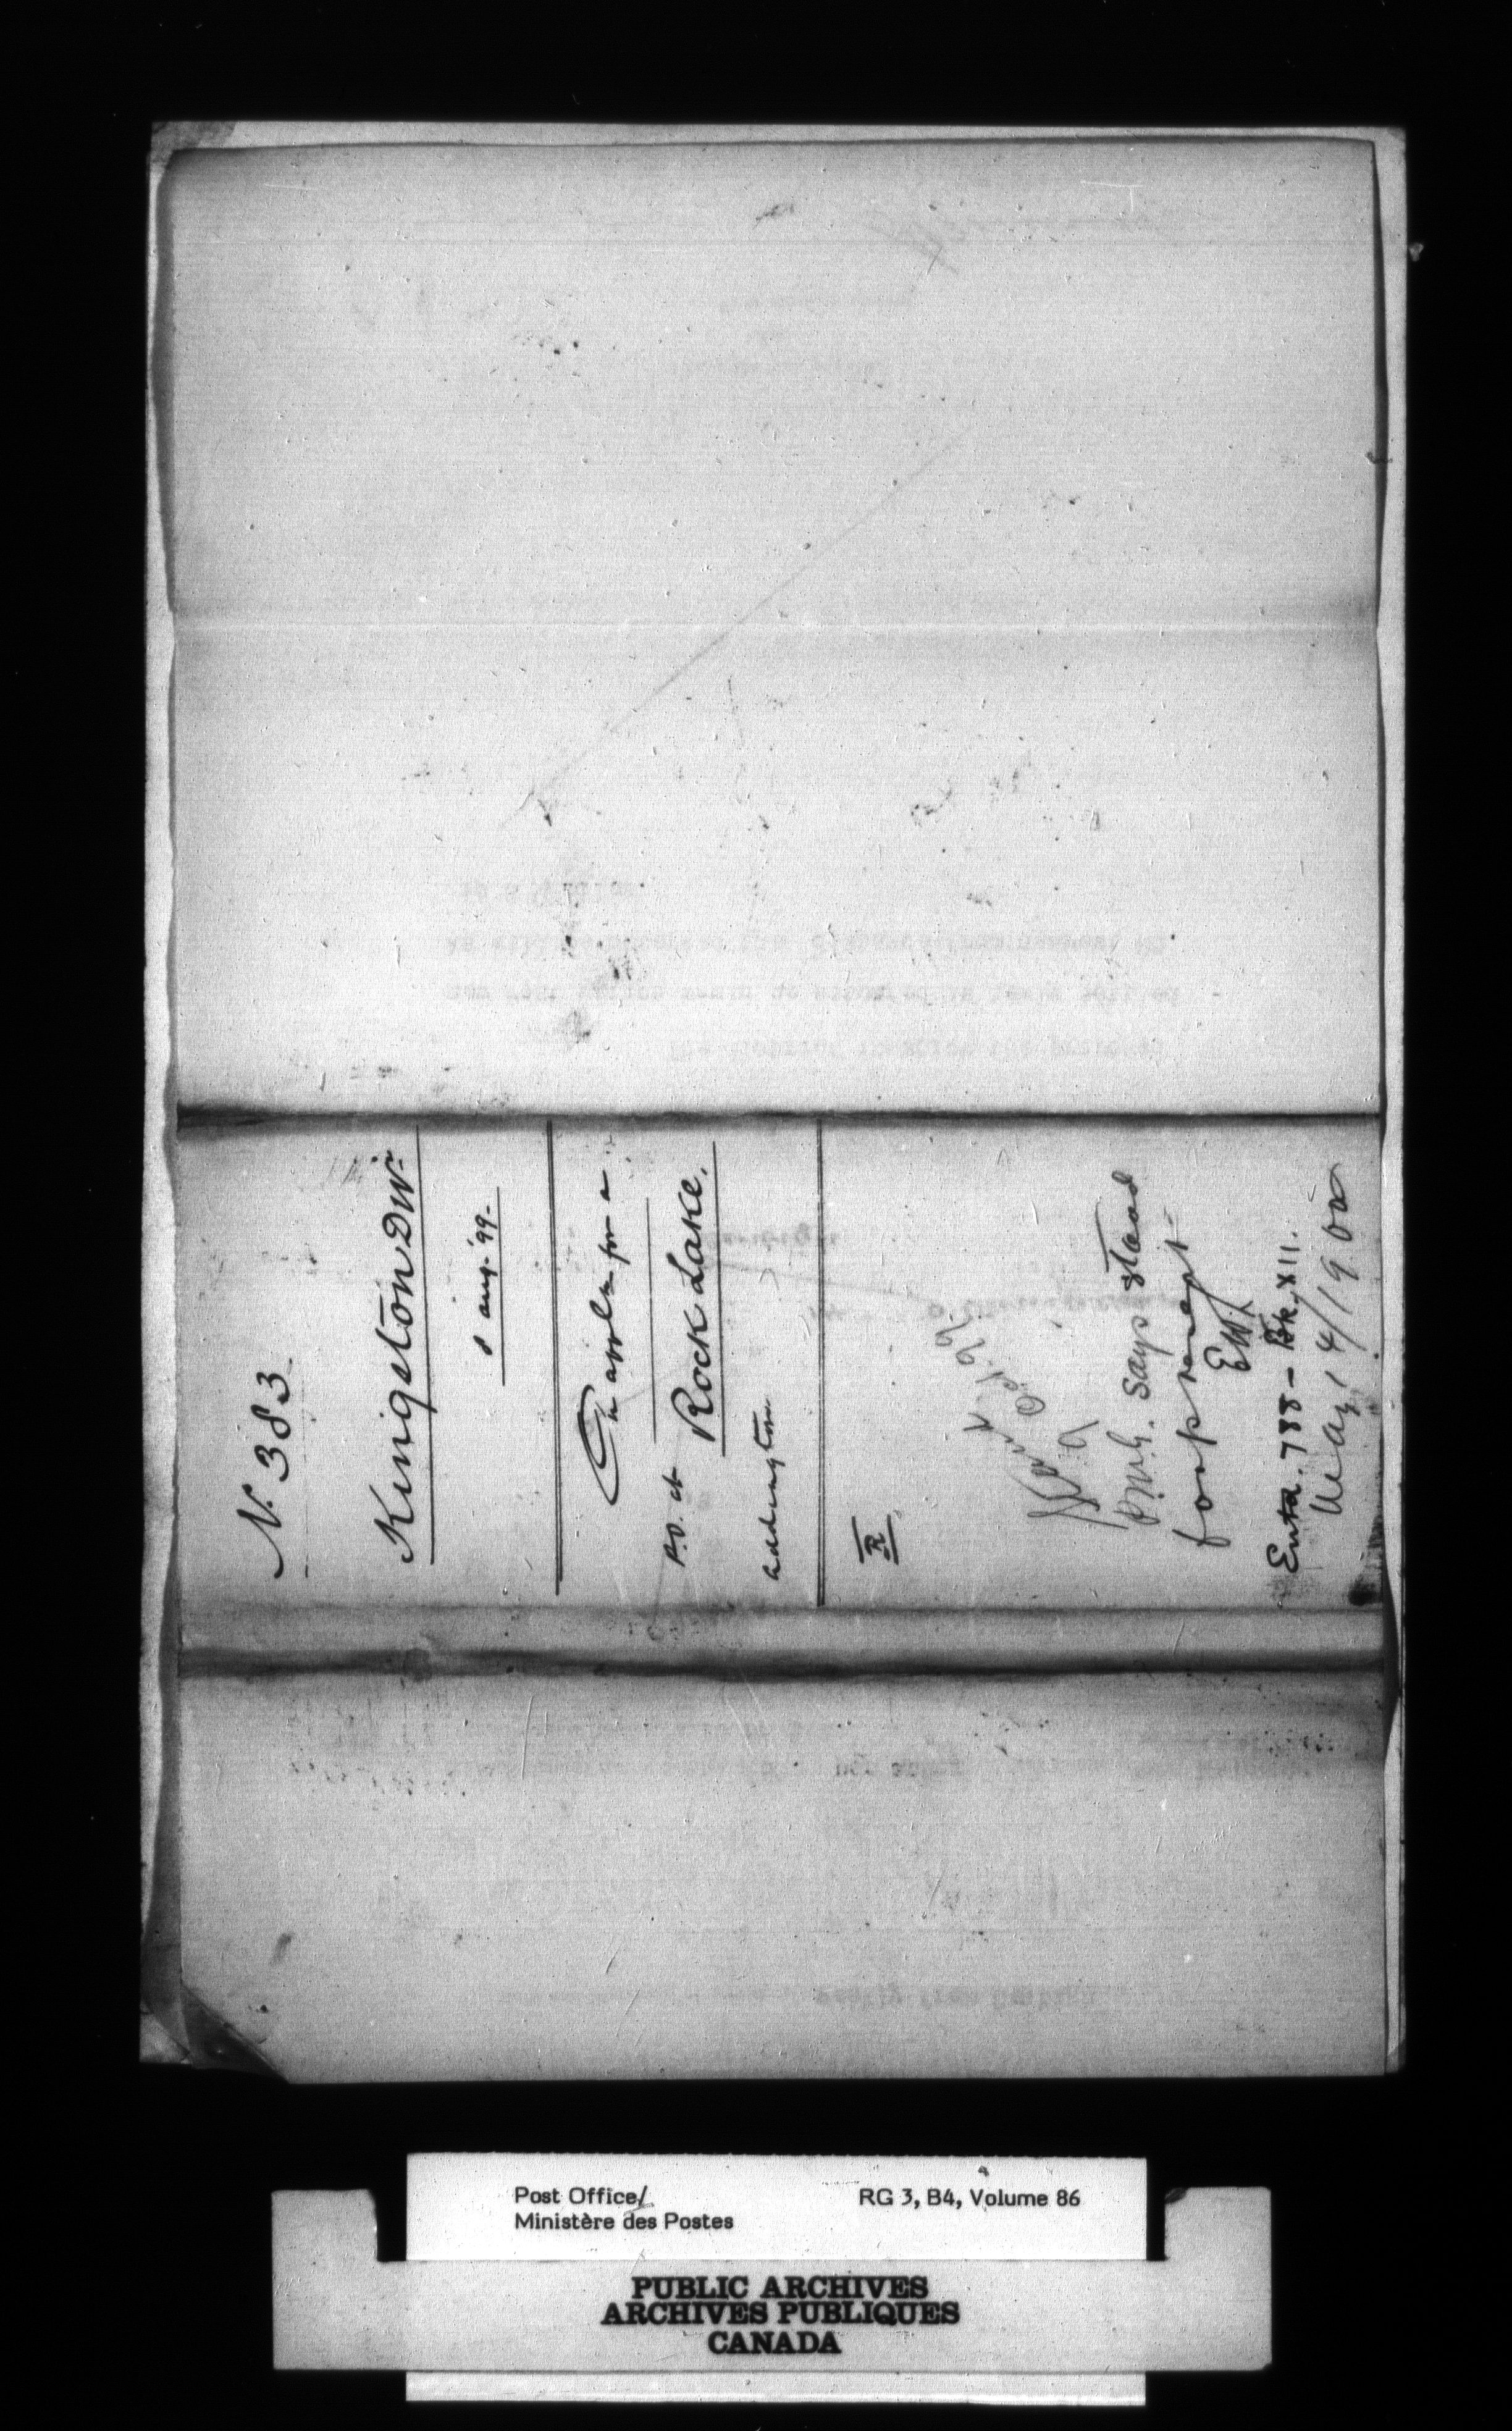 N. 383
Kingston DW.
8 aug. '99.
On appln for a
P.O. at
Rock Lake.
Addington
R
Oct. 99
says stand
for present
EWL
Entd. 788 - Bk. XII.
May 14/1900
Post Office/
Ministère des Postes
RG 3, B4, Volume 86
PUBLIC ARCHIVES
ARCHIVES PUBLIQUES
CANADA